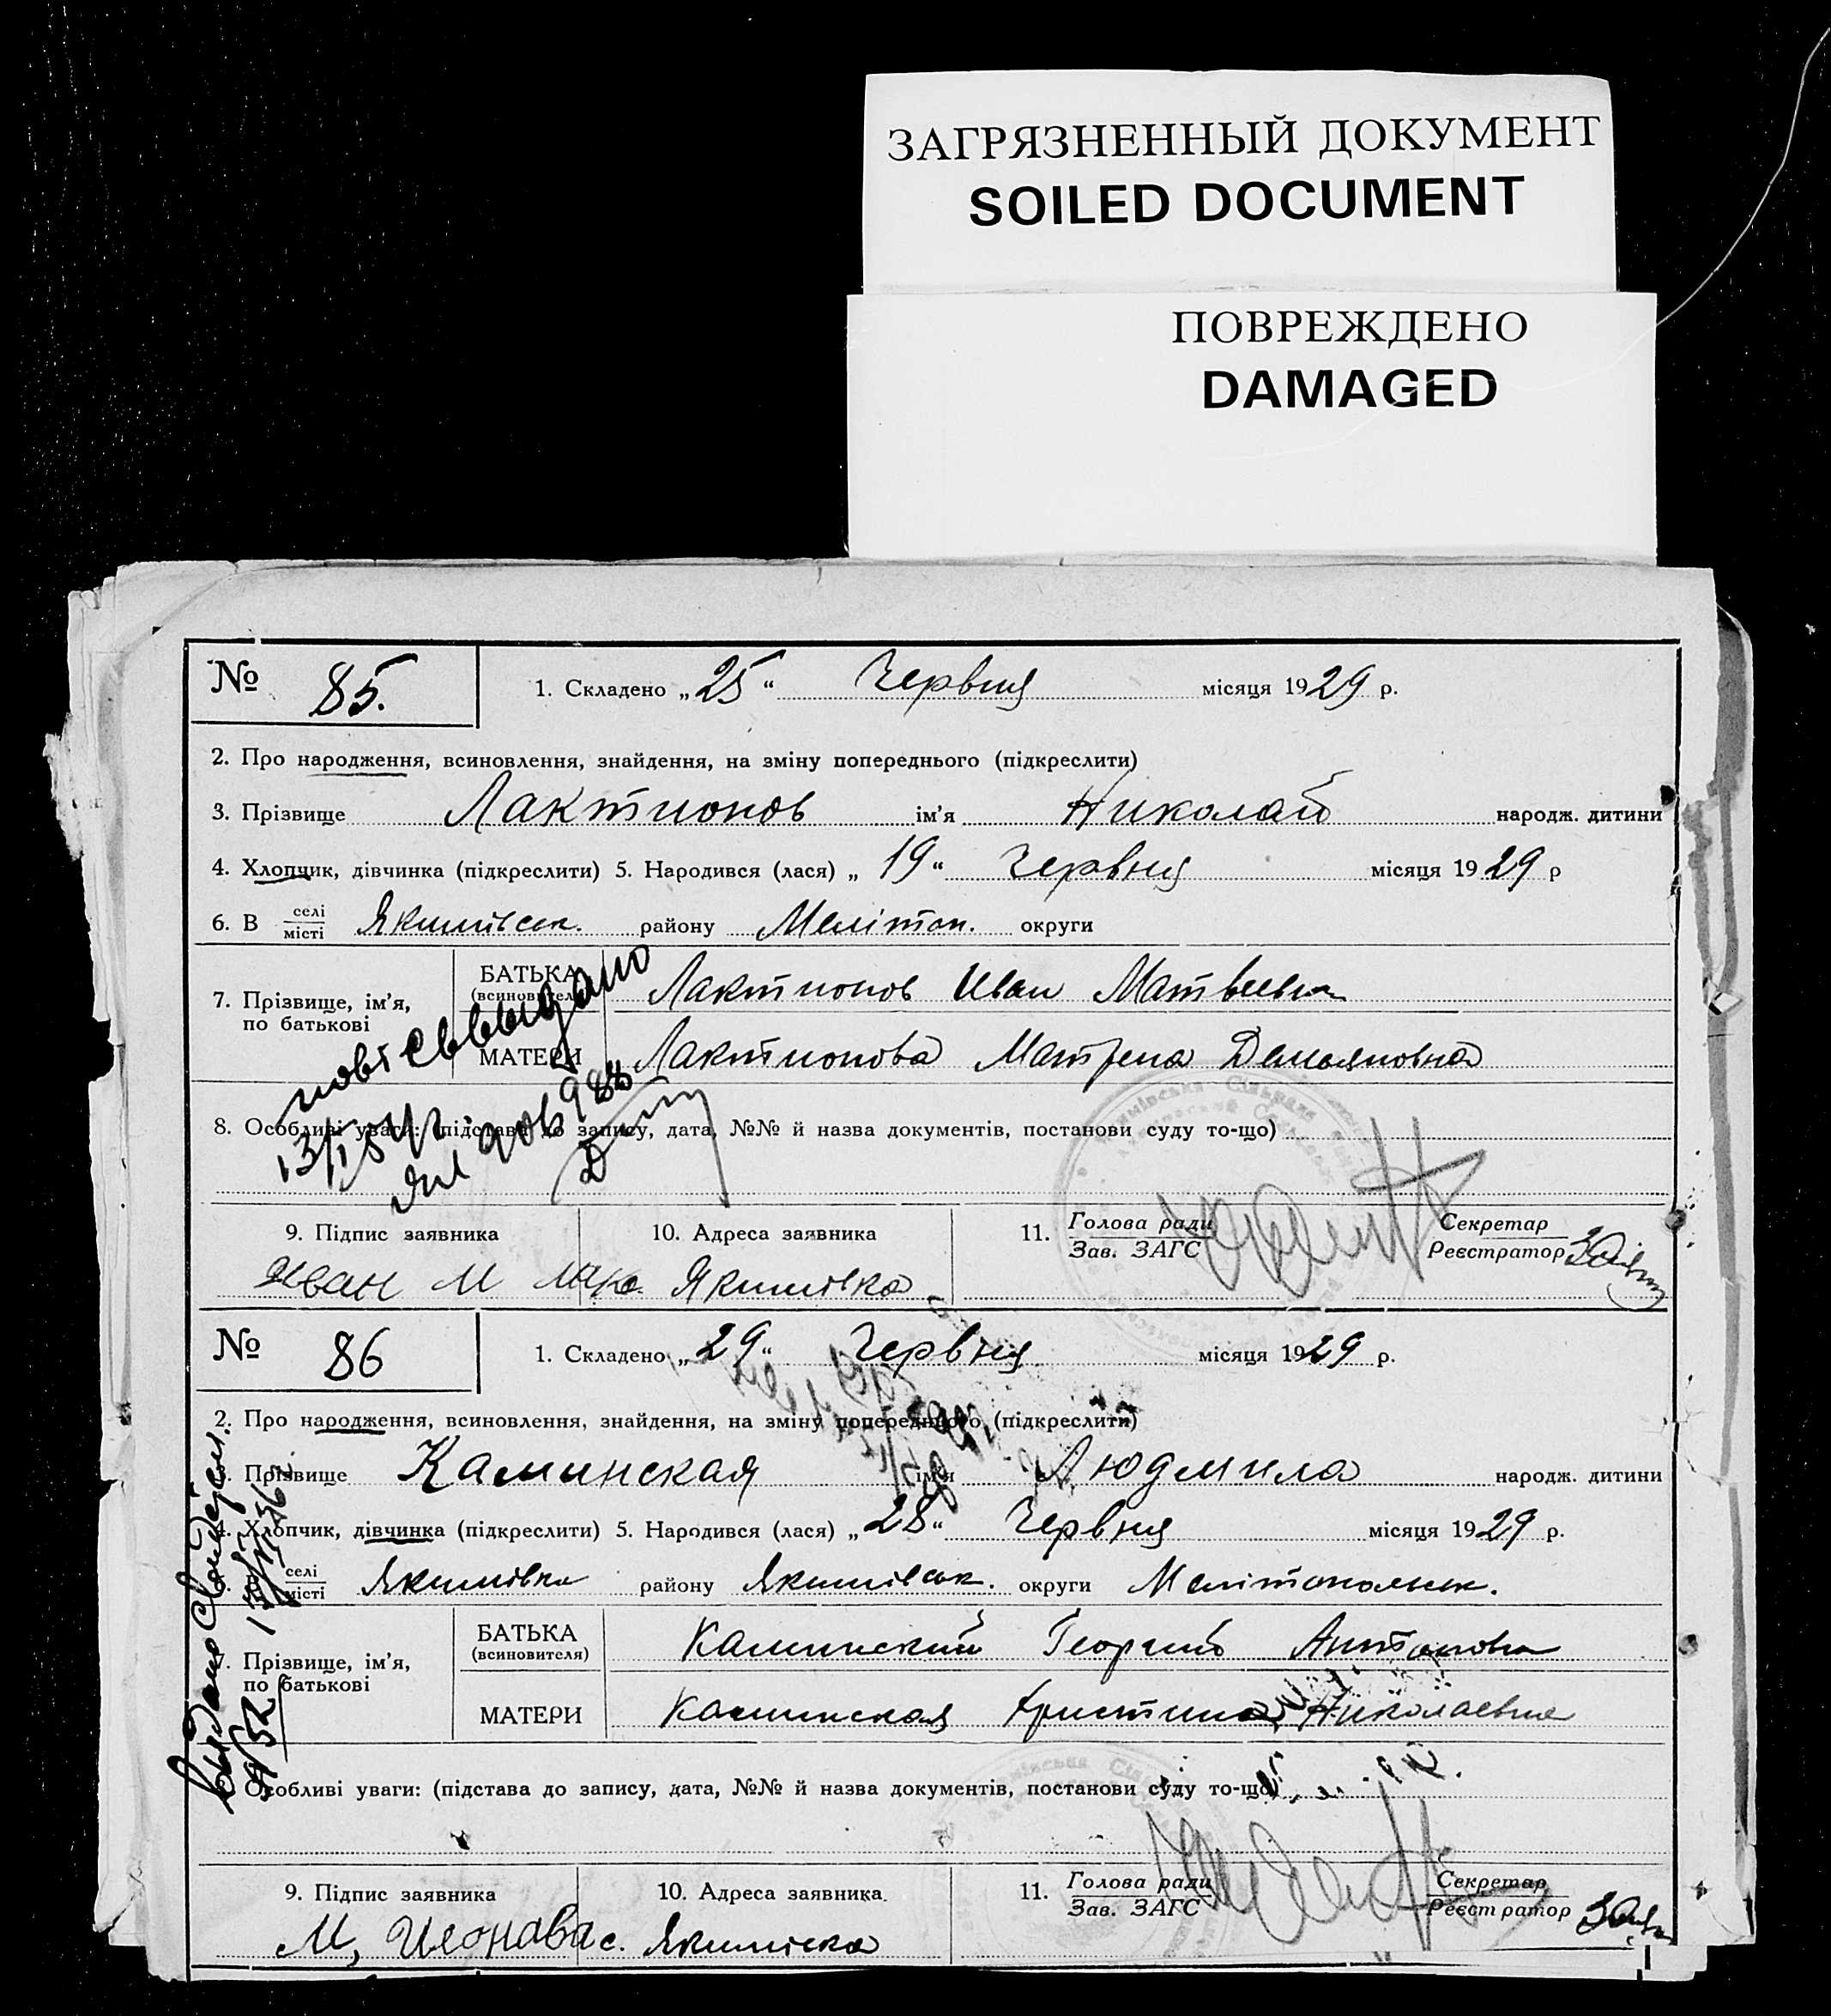 ЗАГРЯЗНЕННЫЙ ДОКУМЕНТ
SOILED DOCUMENT
ПОВРЕЖДЕНО
DAMAGED
№ 85. 1. Складено „25“ Червня місяця 1929 р.
2. Про народження, всиновлення, знайдення, на зміну попереднього (підкреслити)
3. Прізвище Лактионов ім'я Николай народж. дитини
4. Хлопчик, дівчинка (підкреслити) 5. Народився (лася) „19“ Червня місяця 1929 р
6. В селі місті Якимівськ. району Мелітоп. округи
7. Прізвище, ім'я, по батькові
БАТЬКА (всиновителя) Лактионов Иван Матвеевич
МАТЕРИ Лактионова Матрена Демьяновна
8. Особливі уваги: (підстава до запису, дата, №№ й назва документів, постанови суду то-що)
9. Підпис заявника 10. Адреса заявника 11. Голова ради Зав. ЗАГС Секретар Реєстратор
Иван М Якимівка
№ 86 1. Складено „29“ Червня місяця 1929 р.
2. Про народження, всиновлення, знайдення, на зміну попереднього (підкреслити)
Прізвище Каминская ім'я Людмила народж. дитини
4. Хлопчик, дівчинка (підкреслити) 5. Народився (лася) „28“ Червня місяця 1929 р.
селі місті Якимівка району Якимівськ. округи Мелітопольськ.
Прізвище, ім'я, по батькові
БАТЬКА (всиновителя) Каминский Георгий Антонович
МАТЕРИ Каминская Христина Николаевна
Особливі уваги: (підстава до запису, дата, №№ й назва документів, постанови суду то-що)
9. Підпис заявника 10. Адреса заявника 11. Голова ради Зав. ЗАГС Секретар Реєстратор
М, с. Якимівка